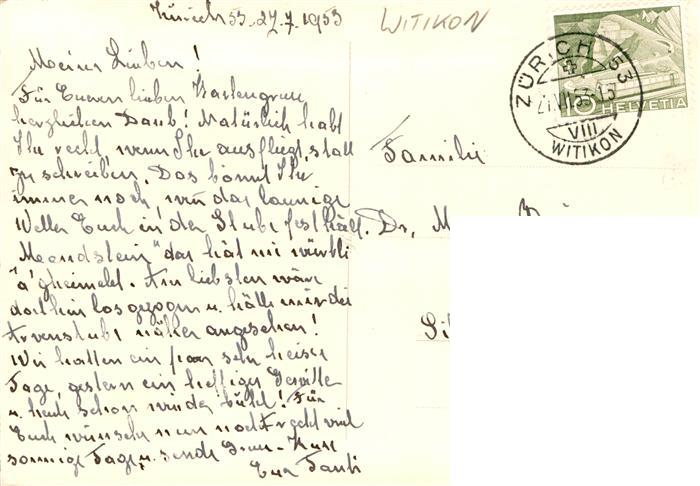 Zürich 53. 27.7.1953
WITIKON
Meine Lieben!
Für Eueren lieben Kartengruss
herzlichen Dank! Natürlich habt
Ihr recht, wenn Ihr ausfliegt, statt
zu schreiben. Das könnt Ihr
immer noch, wenn das launige
Wetter Euch in der Stube festhält.
Maendstein" das hät mi würkli
"a'gheimelet. Am liebsten wäre
dorthin losgezogen u. hätte mir die
Arvenstube näher angesehen!
Wir hatten ein paar sehr heisse
Tage, gestern ein heftiges Gewitter
u. heute schon wieder kühl! Für
Euch wünsche nun noch recht viel
sonnige Tage u. sende Gruss - Kuss
Eua Tanti
Familie
Dr. M
ZÜRICH 53
VIII
WITIKON
10 HELVETIA